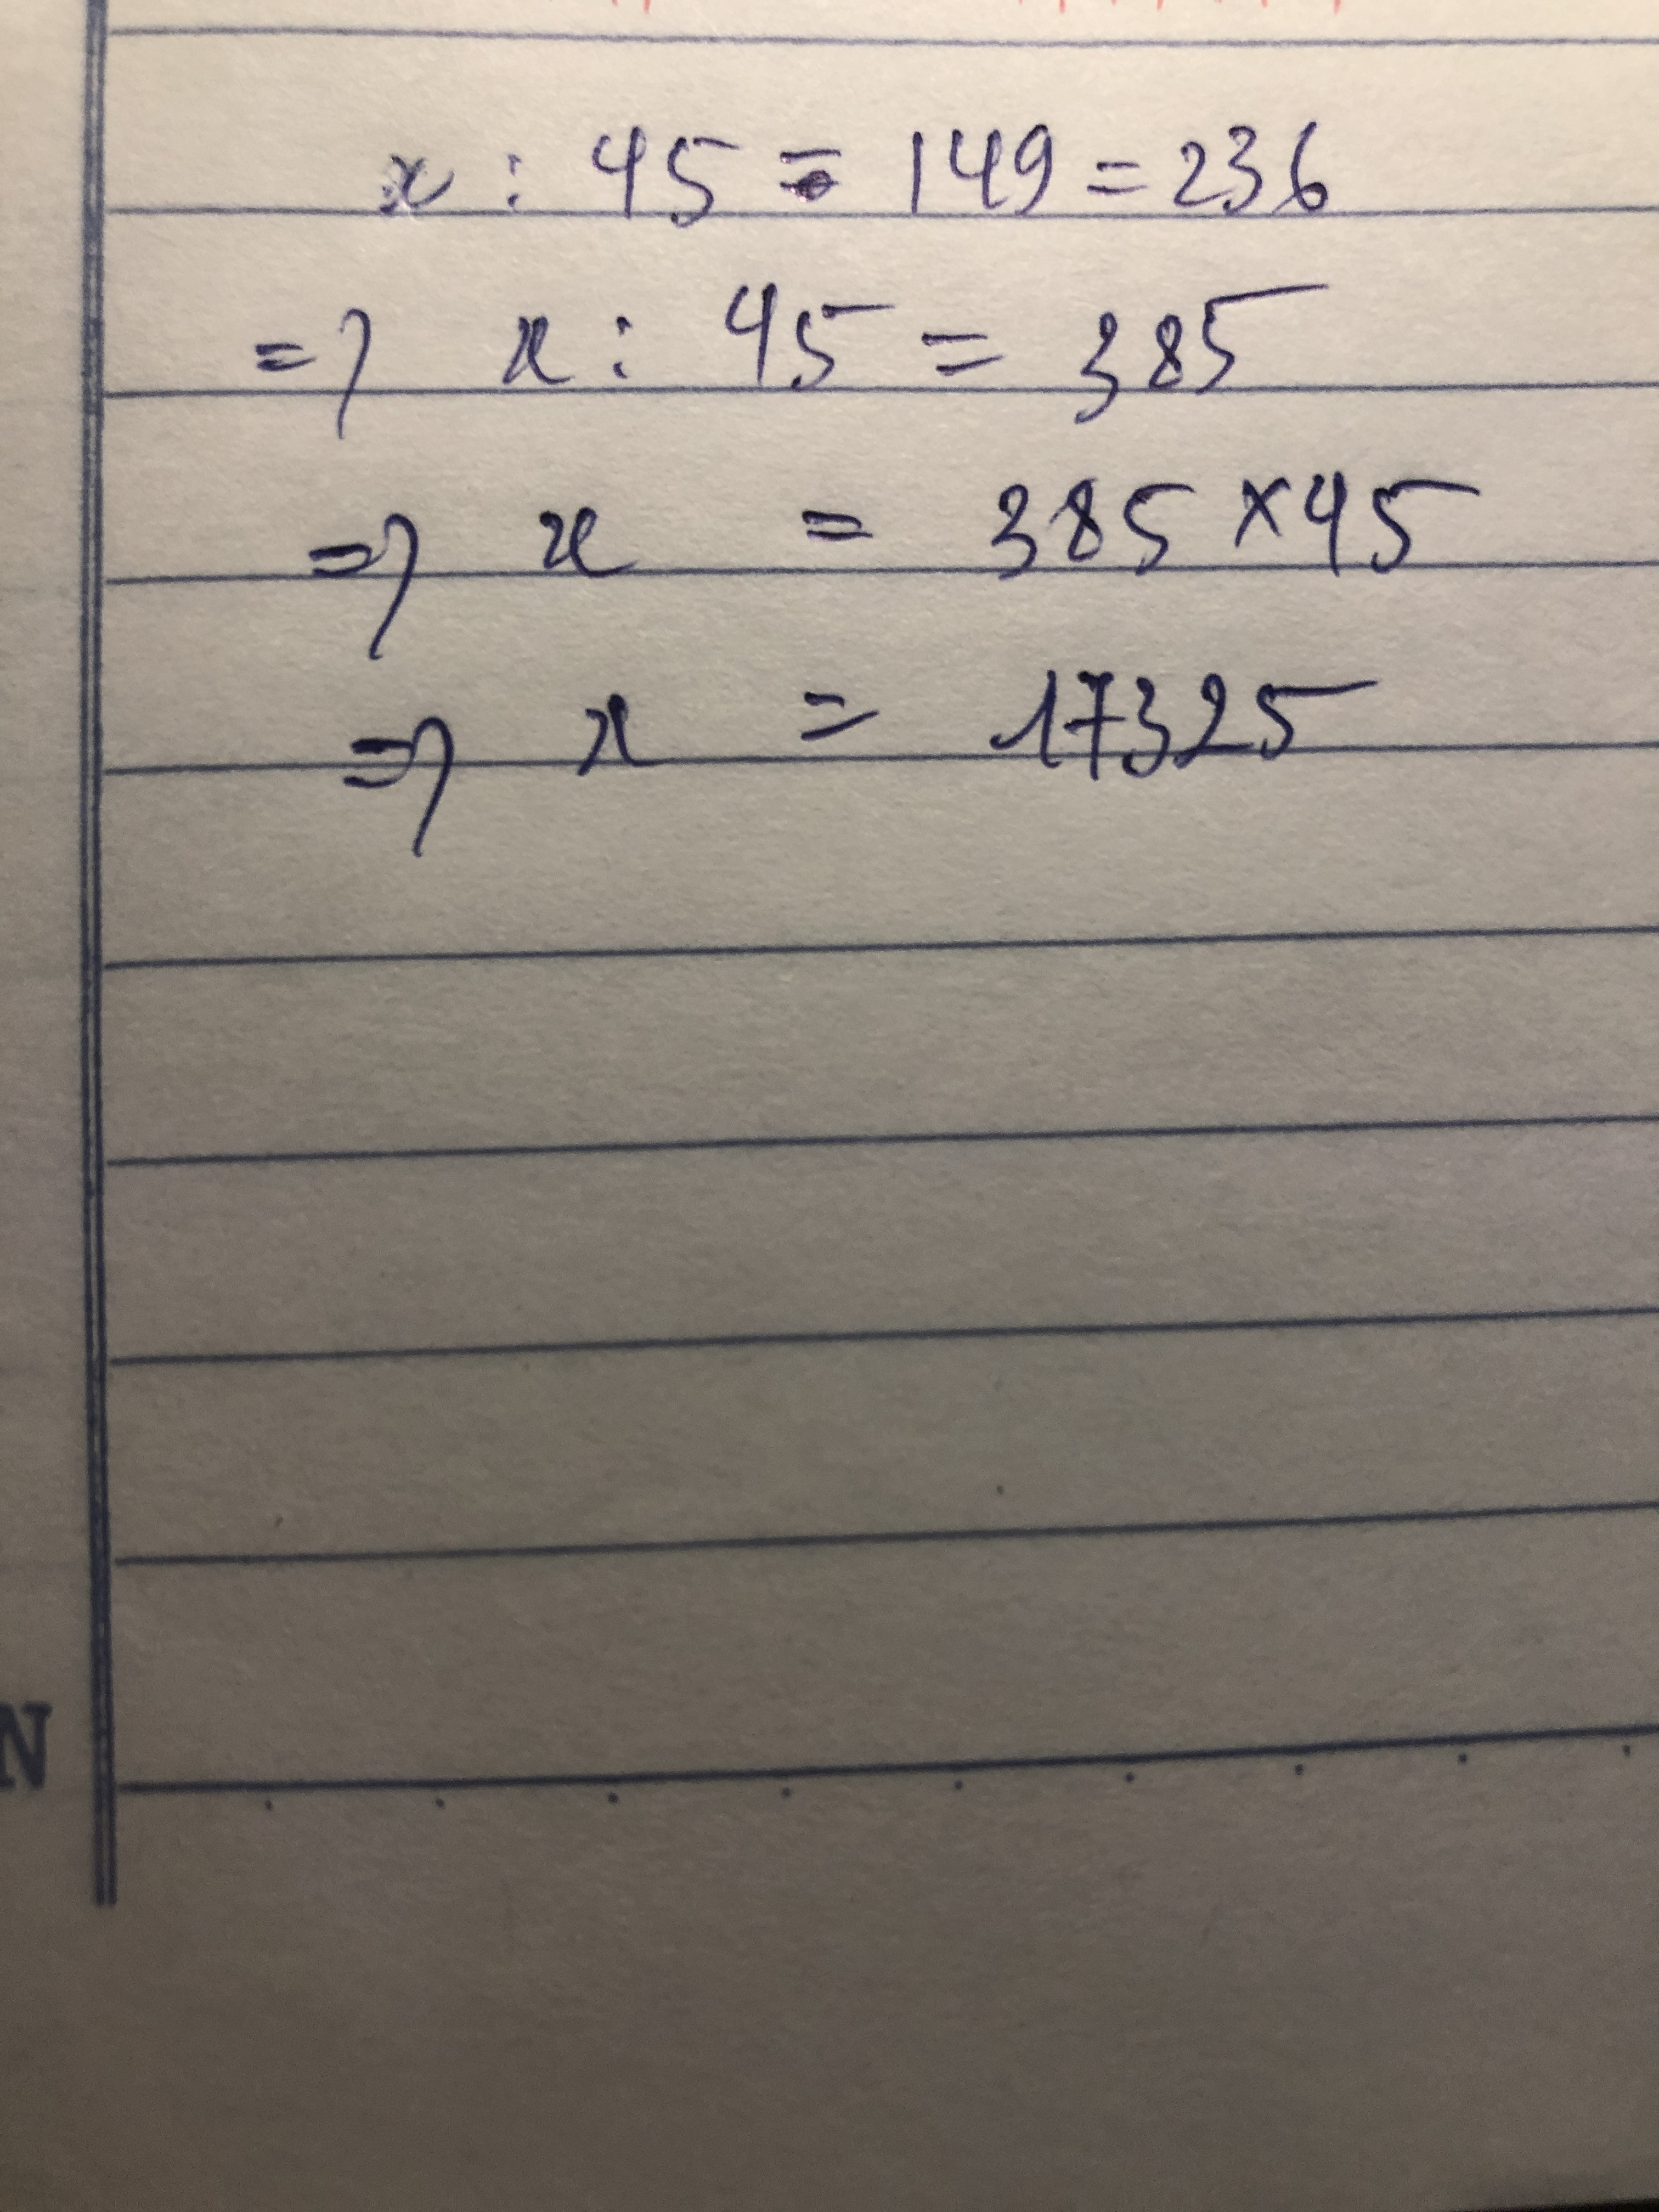 x : 45 - 149 = 236
=> x : 45 = 385
=> x = 385 × 45
=> x = 17325
N